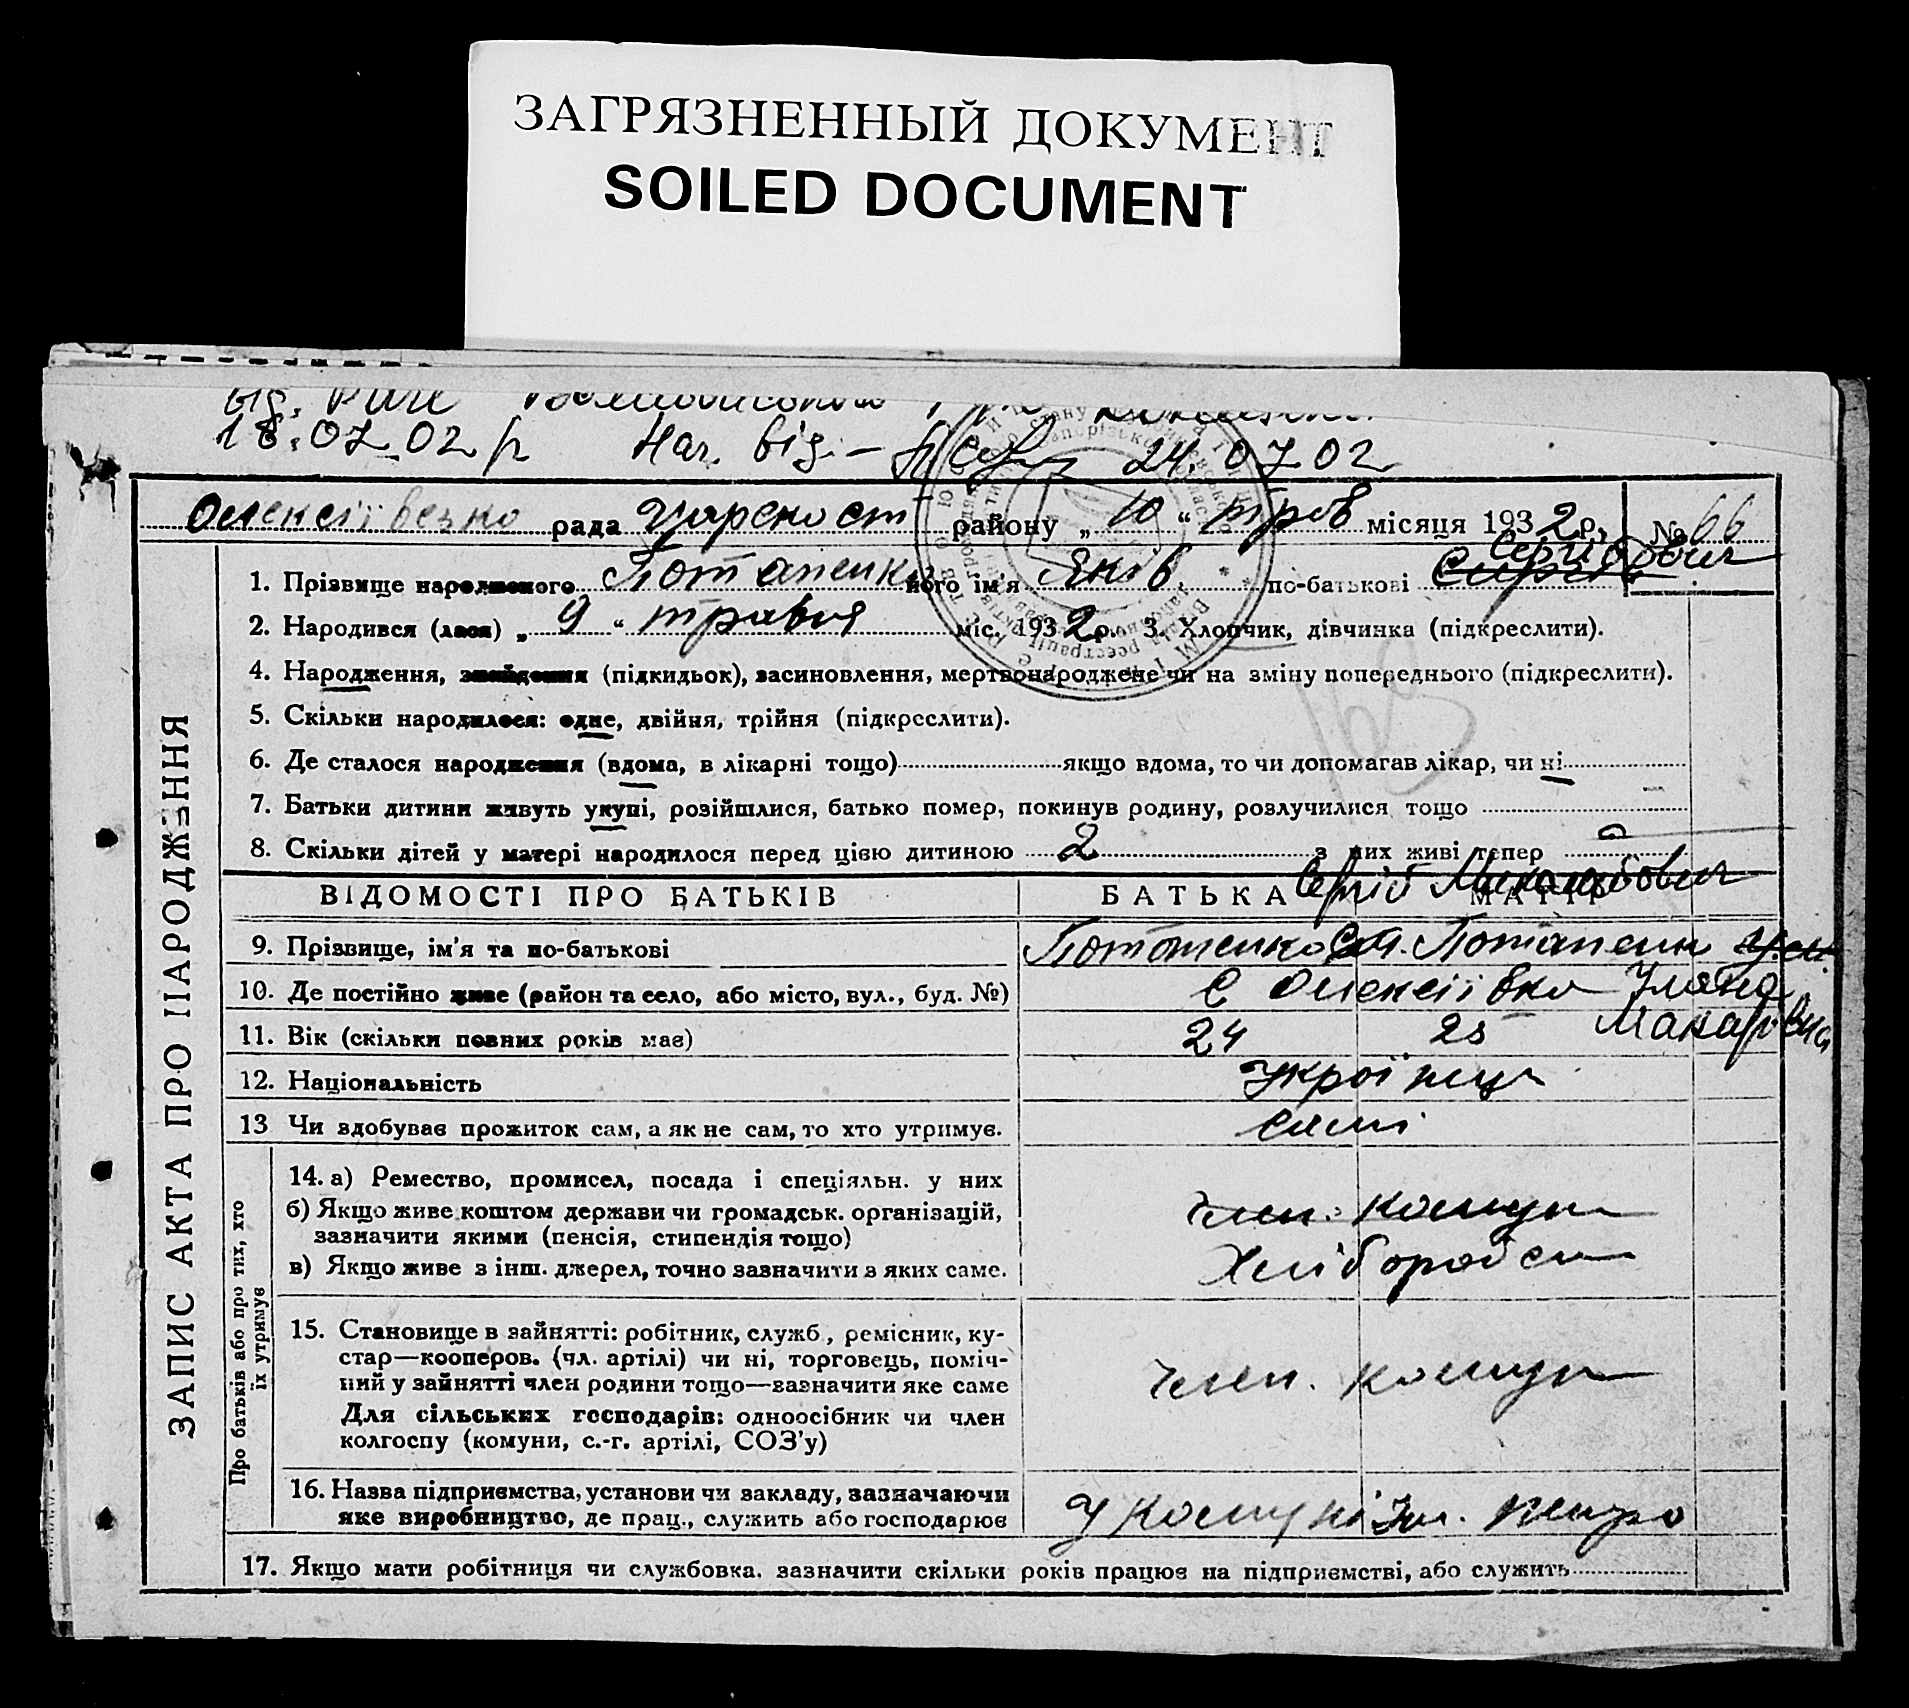 ЗАГРЯЗНЕННЫЙ ДОКУМЕНТ
SOILED DOCUMENT
18.07.02 р Нач. від. – 24.07.02
Олексіївська рада району „10“ трав місяця 1932 р. № 66
Сергійович
1. Прізвище народженого Потапенко його ім'я Яків по-батькові
2. Народився (лася) „9“ травня міс. 1932 р. 3. Хлопчик, дівчинка (підкреслити).
4. Народження, знайдення (підкидьок), засиновлення, мертвонароджене чи на зміну попереднього (підкреслити).
163
5. Скільки народилося: одне, двійня, трійня (підкреслити).
6. Де сталося народження (вдома, в лікарні тощо) якщо вдома, то чи допомагав лікар, чи ні
7. Батьки дитини живуть укупі, розійшлися, батько помер, покинув родину, розлучилися тощо
8. Скільки дітей у матері народилося перед цією дитиною 2 з них живі тепер
Сергій Миколайович
ВІДОМОСТІ ПРО БАТЬКІВ БАТЬКА МАТІР
9. Прізвище, ім'я та по-батькові Потапенко Потапенко
10. Де постійно живе (район та село, або місто, вул., буд. №) С Олексіївка Уляна
11. Вік (скільки повних років має) 24 25 Макарівна
12. Національність Українці
13 Чи здобуває прожиток сам, а як не сам, то хто утримує. самі
ЗАПИС АКТА ПРО НАРОДЖЕННЯ
Про батьків або про тих, хто їх утримує
14. а) Ремество, промисел, посада і спеціяльн. у них
б) Якщо живе коштом держави чи громадськ. організацій, член. комун
зазначити якими (пенсія, стипендія тощо)
в) Якщо живе з інш. джерел, точно зазначити з яких саме. Хлібороб
15. Становище в зайнятті: робітник, служб., ремісник, ку-
стар—кооперов. (чл. артілі) чи ні, торговець, поміч-
ний у зайнятті член родини тощо—зазначити яке саме член. комун
Для сільських господарів: одноосібник чи член
колгоспу (комуни, с.-г. артілі, СОЗ'у)
16. Назва підприємства, установи чи закладу, зазначаючи
яке виробництво, де прац., служить або господарює У комуні
17. Якщо мати робітниця чи службовка. зазначити скільки років працює на підприємстві, або служить